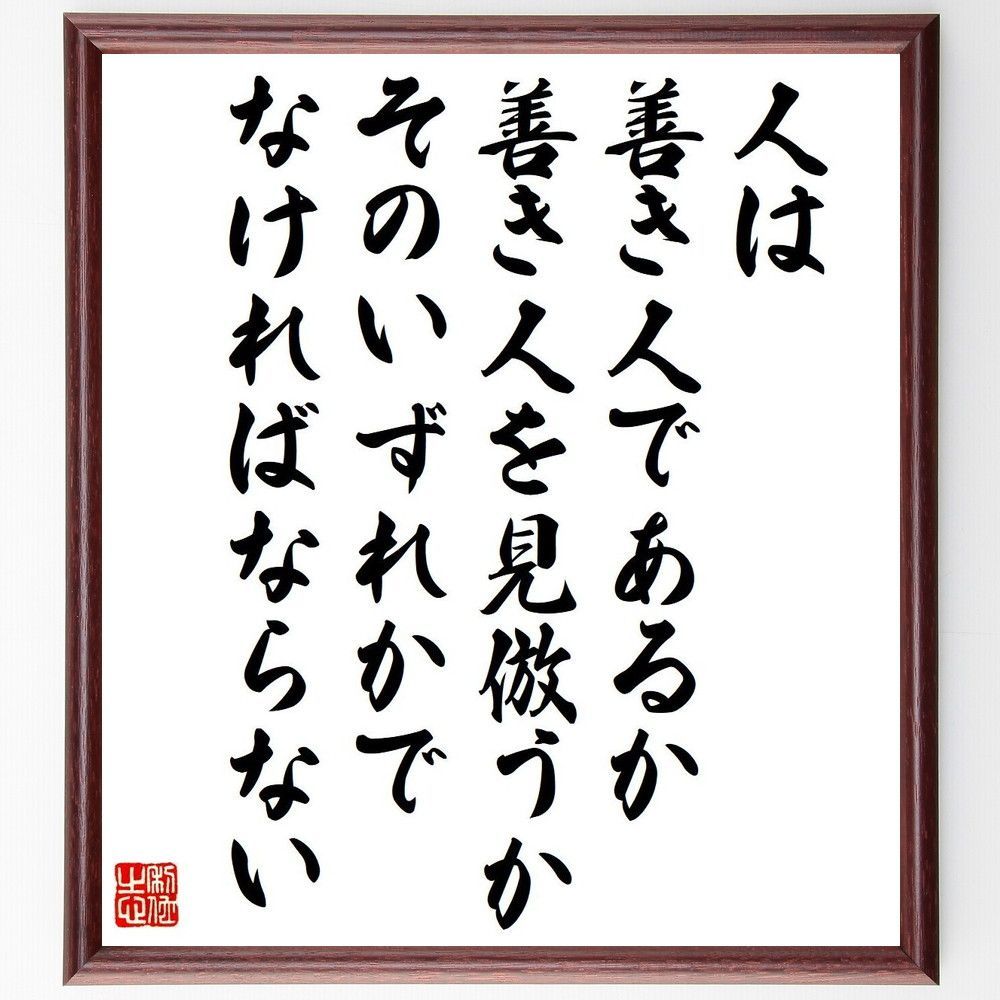 人は
善き人であるか
善き人を見倣うか
そのいずれかで
なければならない